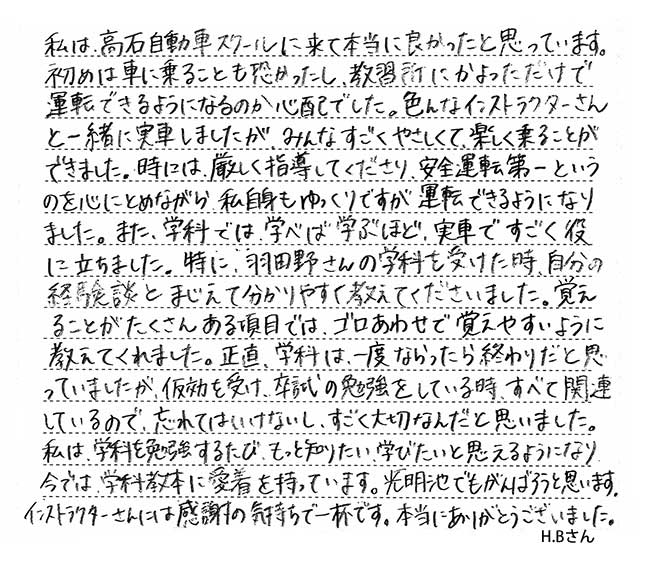 私は、高石自動車スクールに来て本当に良かったと思っています。
初めは車に乗ることも恐かったし、教習所にかよっただけで
運転できるようになるのか心配でした。色んなインストラクターさん
と一緒に実車しましたが、みんなすごくやさしくて、楽しく乗ることが
できました。時には、厳しく指導してくださり、安全運転第一という
のを心にとめながら、私自身もゆっくりですが運転できるようになり
ました。また、学科では、学べば学ぶほど、実車ですごく役
に立ちました。特に、羽田野さんの学科を受けた時、自分の
経験談とまじえて分かりやすく教えてくださいました。覚え
ることがたくさんある項目では、ゴロあわせで覚えやすいように
教えてくれました。正直、学科は、一度ならったら終わりだと思
っていましたが、仮効を受け、卒試の勉強をしている時、すべて関連
しているので、忘れてはいけないし、すごく大切なんだと思いました。
私は、学科を勉強するたび、もっと知りたい、学びたいと思えるようになり、
今では、学科教本に愛着を持っています。光明池でもがんばろうと思います。
インストラクターさんには感謝の気持ちで一杯です。本当にありがとうございました。
H.Bさん